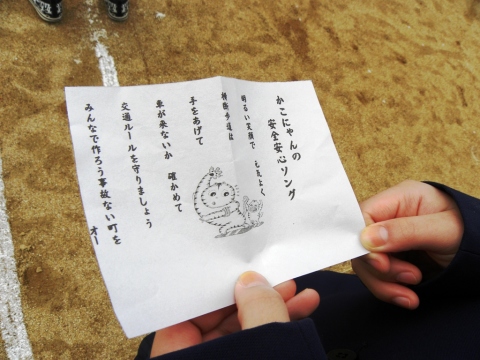 かこにゃんの
安全安心ソング
明るい笑顔で 元気よく
横断歩道は
手をあげて
車が来ないか 確かめて
交通ルールを守りましょう
みんなで作ろう事故ない町を
オー